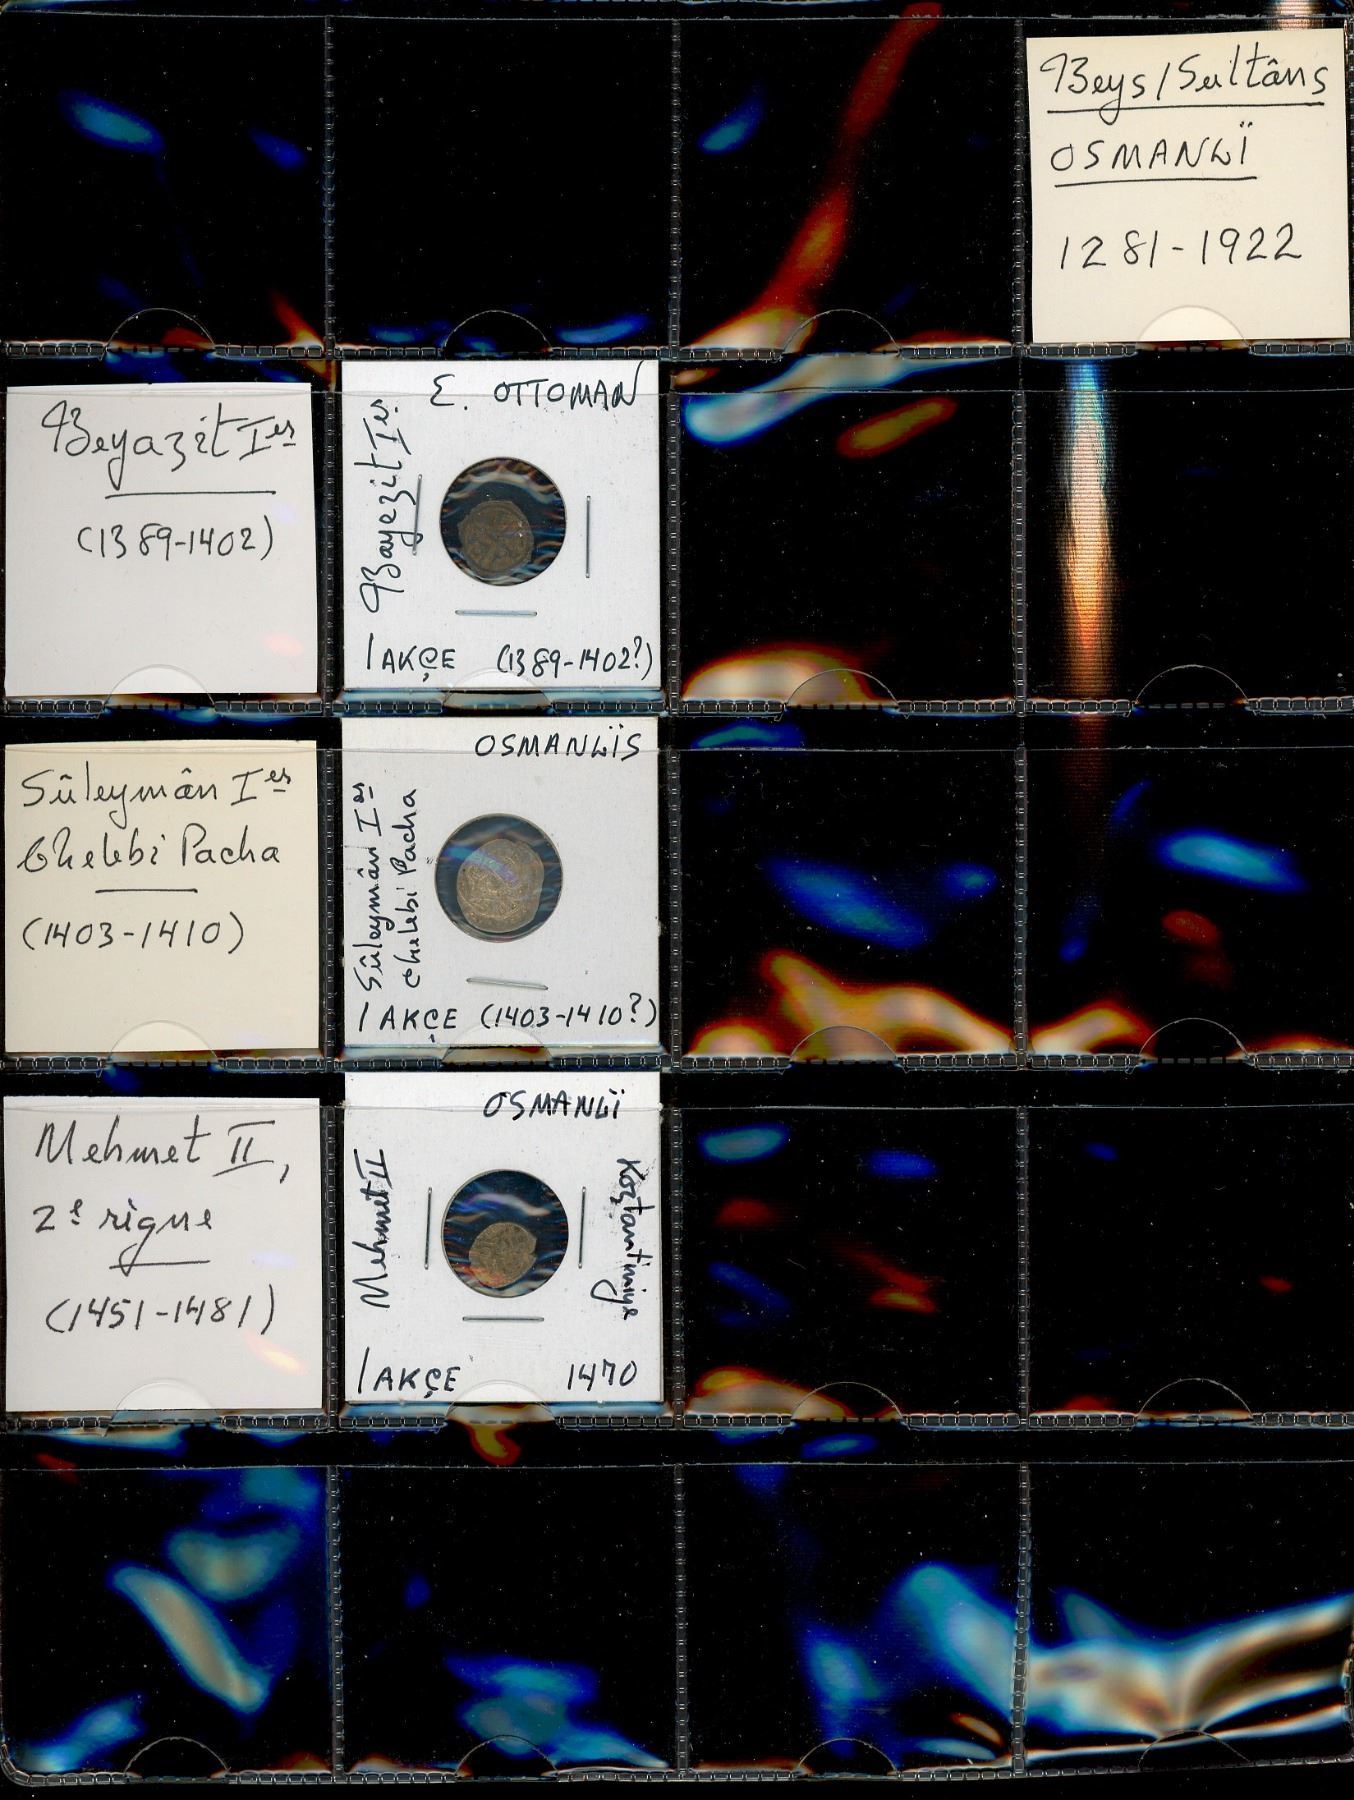 Beys/Sultâns
OSMANLÏ
1281-1922
Beyazit Ier
(1389-1402)
E. OTTOMAN
Bayezit Ier
1 AKÇE (1389-1402?)
Sûleymân Ier
Chelebi Pacha
(1403-1410)
OSMANLÏS
Sûleymân Ier
Chelebi Pacha
1 AKÇE (1403-1410?)
Mehmet II,
2e règne
(1451-1481)
OSMANLÏ
Mehmet II
Kostantiniye
1 AKÇE 1470